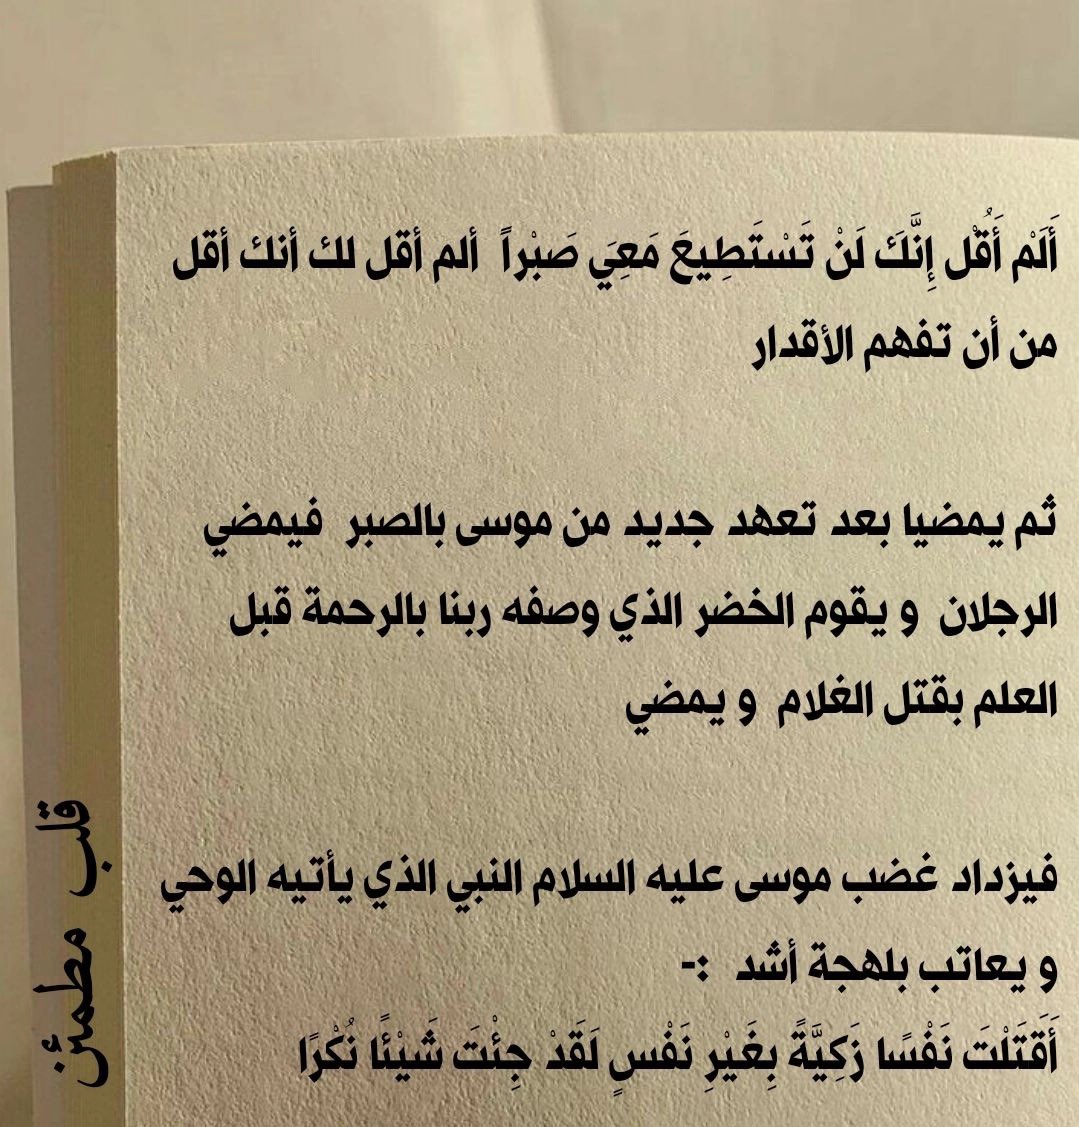 أَلَمْ أَقُل إِنَّكَ لَنْ تَسْتَطِيعَ مَعِيَ صَبْراً ألم أقل لك أنك أقل
من أن تفهم الأقدار
ثم يمضيا بعد تعهد جديد من موسى بالصبر فيمضي
الرجلان و يقوم الخضر الذي وصفه ربنا بالرحمة قبل
العلم بقتل الغلام و يمضي
فيزداد غضب موسى عليه السلام النبي الذي يأتيه الوحي
و يعاتب بلهجة أشد :-
أَقَتَلْتَ نَفْسًا زَكِيَّةً بِغَيْرِ نَفْسٍ لَقَدْ جِئْتَ شَيْئًا نُكْرًا
قلب مطمئن